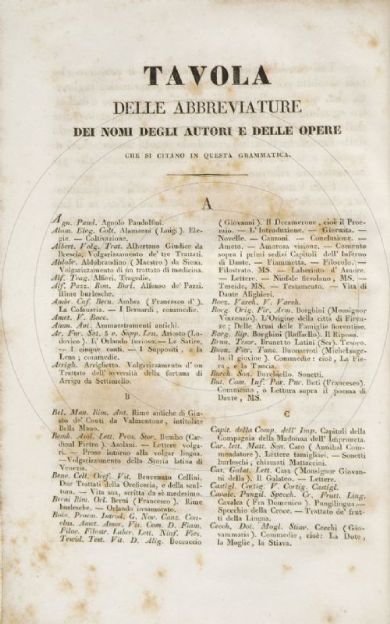 TAVOLA
DELLE ABBREVIATURE
DEI NOMI DEGLI AUTORI E DELLE OPERE
CHE SI CITANO IN QUESTA GRAMMATICA.
A
Agn. Pand. Agnolo Pandolfini.
Alam. Eleg. Colt. Alamanni (Luigi). Ele-
gie. — Coltivazione.
Albert. Volg. Trat. Albertano Giudice da
Brescia, Volgarizzamento de' tre Trattati.
Aldobr. Aldobrandino (Maestro) da Siena.
Volgarizzamento di un trattato di medicina.
Alf. Trag. Alfieri. Tragedie.
Alf. Pazz. Rim. Burl. Alfonso de' Pazzi.
Rime burlesche.
Ambr. Cof. Bern. Ambra (Francesco d').
La Cofanaria. — I Bernardi, commedie.
Amet. V. Bocc.
Amm. Ant. Ammaestramenti antichi.
Ar. Fur. Sat. 5 c. Supp. Len. Ariosto (Lo-
dovico). L' Orlando furioso. — Le Satire,
— I cinque canti. — I Suppositi, e la
Lena; commedie.
Arrigh. Arrighetto. Volgarizzamento d' un
Trattato dell' avversità della fortuna di
Arrigo da Settimello.
B
Bel. Man. Rim. Ant. Rime antiche di Giu-
sto de' Conti da Valmontone, intitolate
Bella Mano.
Bemb. Asol. Lett. Pros. Stor. Bembo (Car-
dinal Pietro). Asolani. — Lettere volga-
ri. — Prose intorno alla volgar lingua.
— Volgarizzamento della Storia latina di
Venezia.
Benv. Cell. Oref. Vit. Benvenuto Cellini.
Due Trattati della Oreficeria, e della scul-
tura. — Vita sua, scritta da sè medesimo.
Berni Rim. Orl. Berni (Francesco). Rime
burlesche. — Orlando innamorato.
Bocc. Proem. Introd. G. Nov. Canz. Con-
clus. Amet. Amor. Vis. Com. D. Fiam.
Filoc. Filostr. Labor. Lett. Ninf. Fies.
Teseid. Test. Vit. D. Alig. Boccaccio
(Giovanni). Il Decamerone, cioè il Proe-
mio. — L' Introduzione. — Giornata.
Novelle. — Canzoni. — Conclusione. —
Ameto. — Amorosa visione. — Comento
sopra i primi sedici Capitoli dell' Inferno
di Dante. — Fiammetta. — Filocolo. —
Filostrato, MS. — Laberinto d' Amore.
— Lettere. — Ninfale fiesolano, MS. —
Teseide, MS. — Testamento. — Vita di
Dante Alighieri.
Boez. Varch. V. Varch.
Borg. Orig. Fir. Arm. Borghini (Monsignor
Vincenzo). L'Origine della città di Firen-
ze; Delle Armi delle Famiglie fiorentine.
Borg. Rip. Borghini (Raffaello). Il Riposo.
Brun. Tesor. Brunetto Latini (Ser). Tesoro.
Buon. Fier. Tanc. Buonarroti (Michelagno-
lo il giovine). Commedie: cioè, La Fie-
ra, e la Tancia.
Burch. Son. Burchiello. Sonetti.
But. Com. Inf. Pur. Par. Buti (Francesco).
Commento, o Lettura sopra il poema di
Dante, MS.
C
Capit. della Comp. dell' Imp. Capitoli della
Compagnia della Madonna dell' Impruneta.
Car. lett. Matt. Son. Caro (Annibal Com-
mendatore). Lettere famigliari. — Sonetti
burleschi, chiamati Mattaccini.
Cas. Galat. Lett. Casa (Monsignor Giovan-
ni della). Il Galateo. — Lettere.
Castigl. Cortig V. Cortig. Castigl.
Cavalc. Pungil. Specch. Cr. Frutt. Ling.
Cavalca (Fra Domenico). Pungilingua —
Specchio della Croce. — Trattato de' frut-
ti della Lingua.
Cecch. Dot. Mogl. Stiav. Cecchi (Gio-
vammaria). Commedie, cioè: La Dote,
la Moglie, la Stiava.